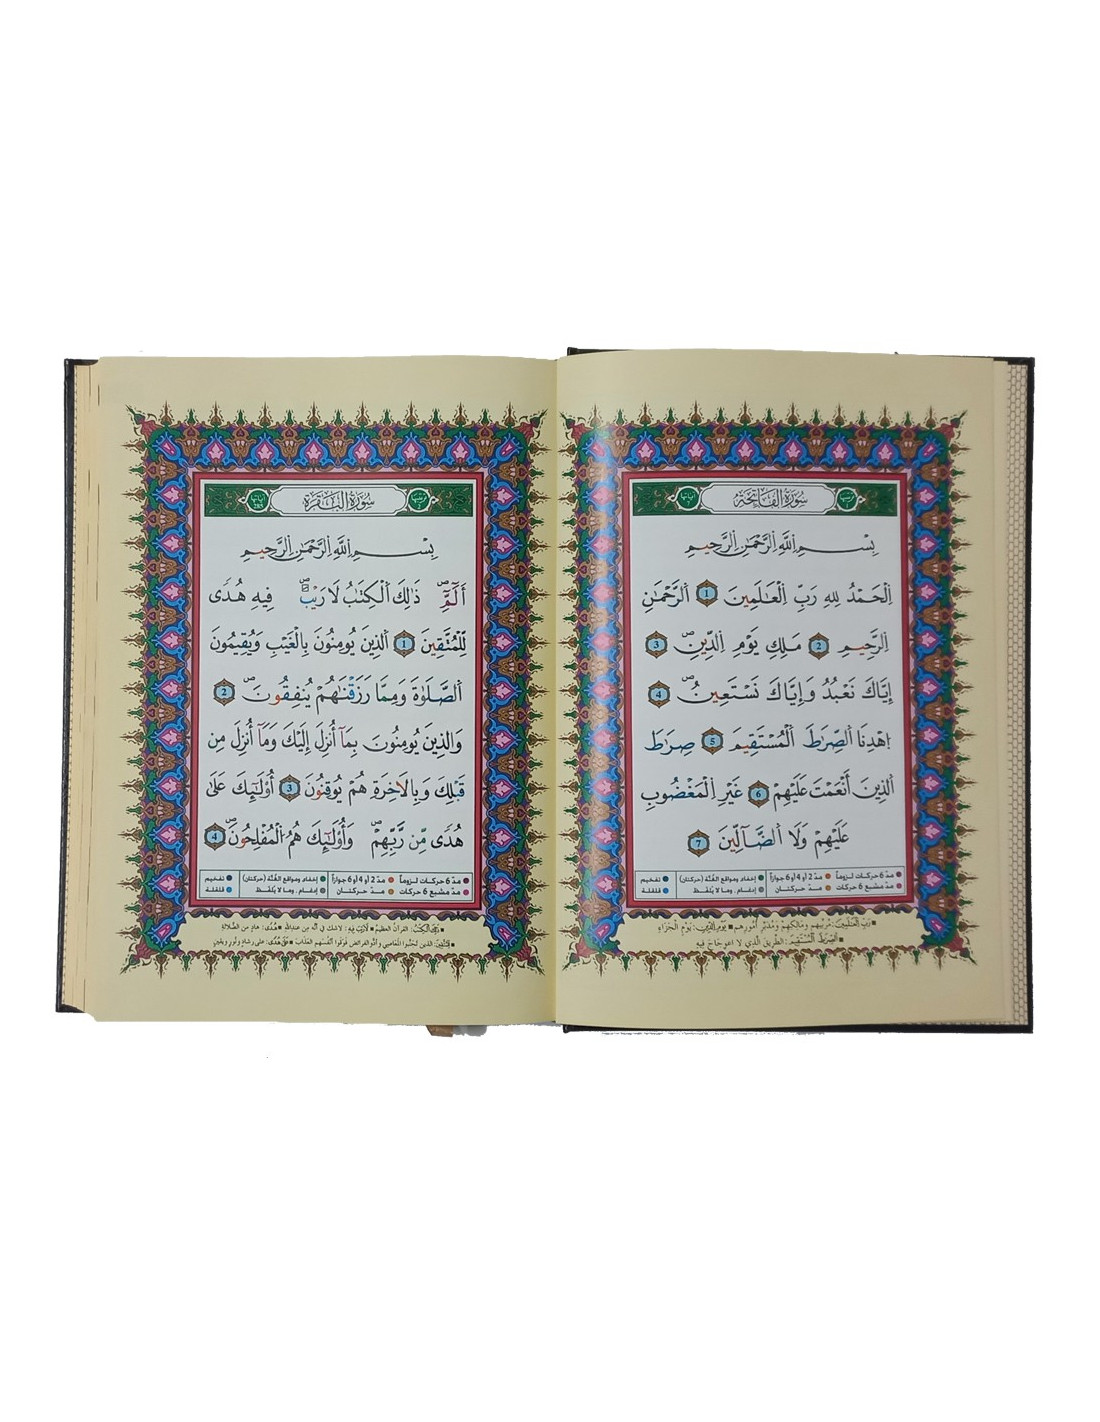 ترتيبها 1 سُورَةُ الْفَاتِحَةِ آياتها 7
بِسْمِ اِللَّهِ اِلرَّحْمَٰنِ اِلرَّحِيمِ
اِلْحَمْدُ لِلهِ رَبِّ اِلْعَٰلَمِينَ 1 اَلرَّحْمَٰنِ
اِلرَّحِيمِ 2 مَلِكِ يَوْمِ اِلدِّينِۖ 3
إِيَّاكَ نَعْبُدُ وَإِيَّاكَ نَسْتَعِينُۖ 4
اَهْدِنَا اَلصِّرَٰطَ اَلْمُسْتَقِيمَ 5 صِرَٰطَ
اَلذِينَ أَنْعَمْتَ عَلَيْهِمْ 6 غَيْرِ اِلْمَغْضُوبِ
عَلَيْهِمْ وَلَا اَلضَّآلِّينَ 7
مدّ 6 حركات لـزوماً مدّ 2 أو 4 أو 6 جوازاً إخفاء ومواقع الغُنَّة (حركتان) تفخيم
مدّ مشبع 6 حركات مـد حركتــان إدغـام ، ومـا لا يُلفـظ قلقلة
رَبِّ اِلْعَٰلَمِينَ: مُربيهم ومَالكِهِمْ ومُدبِّر أمُورِهم يَوْمِ اِلدِّينِ: يَوْمِ الجَزَاءِ
اَلصِّرَٰطَ اَلْمُسْتَقِيمَ: الطَّريق الَّذي لا اعْوِجَاجَ فِيهِ
ترتيبها 2 سُورَةُ الْبَقَرَةِ آياتها 285
بِسْمِ اِللَّهِ اِلرَّحْمَٰنِ اِلرَّحِيمِ
أَلَٓمِّٓۖ ذَٰلِكَ اَلْكِتَٰبُ لَا رَيْبَۖ فِيهِ هُدىٗ
لِّلْمُتَّقِينَ 1 اَلذِينَ يُومِنُونَ بِالْغَيْبِ وَيُقِيمُونَ
اَلصَّلَوٰةَ وَمِمَّا رَزَقْنَٰهُمْ يُنفِقُونَۖ 2
وَالذِينَ يُومِنُونَ بِمَآ أُنزِلَ إِلَيْكَ وَمَآ أُنزِلَ مِن
قَبْلِكَ وَبِالَاخِرَةِ هُمْ يُوقِنُونَ 3 أُوْلَٰٓئِكَ عَلَىٰ
هُدىٗ مِّن رَّبِّهِمْۖ وَأُوْلَٰٓئِكَ هُمُ اُلْمُفْلِحُونَۖ 4
مدّ 6 حركات لـزوماً مدّ 2 أو 4 أو 6 جوازاً إخفاء ومواقع الغُنَّة (حركتان) تفخيم
مدّ مشبع 6 حركات مـد حركتــان إدغـام ، ومـا لا يُلفـظ قلقلة
ذَٰلِكَ اَلْكِتَٰبُ: القرآنُ العظيمُ لَا رَيْبَ فِيهِ: لاشك في أنّه من عندالله هُدىٗ: هادٍ من الضَّلالة
لِّلْمُتَّقِينَ: الذين تجنَّبوا المعَاصي وأدَّوا الفرائض فَوَقَوْا أنفُسَهم العَذَابَ عَلَىٰ هُدىٗ: على رشادٍ ونُورٍ ويقينٍ